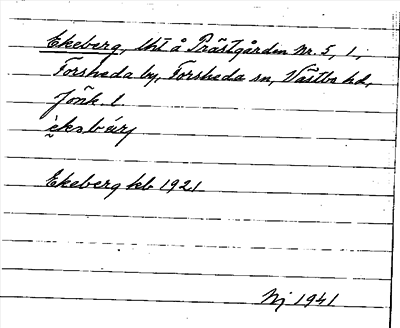 Ekeberg, lht å Prästgården Nr. 5, 1,
Forsheda by, Forsheda sn, Västbo hd,
Jönk. l.
Ekeberg kb 1921
Nj 1941